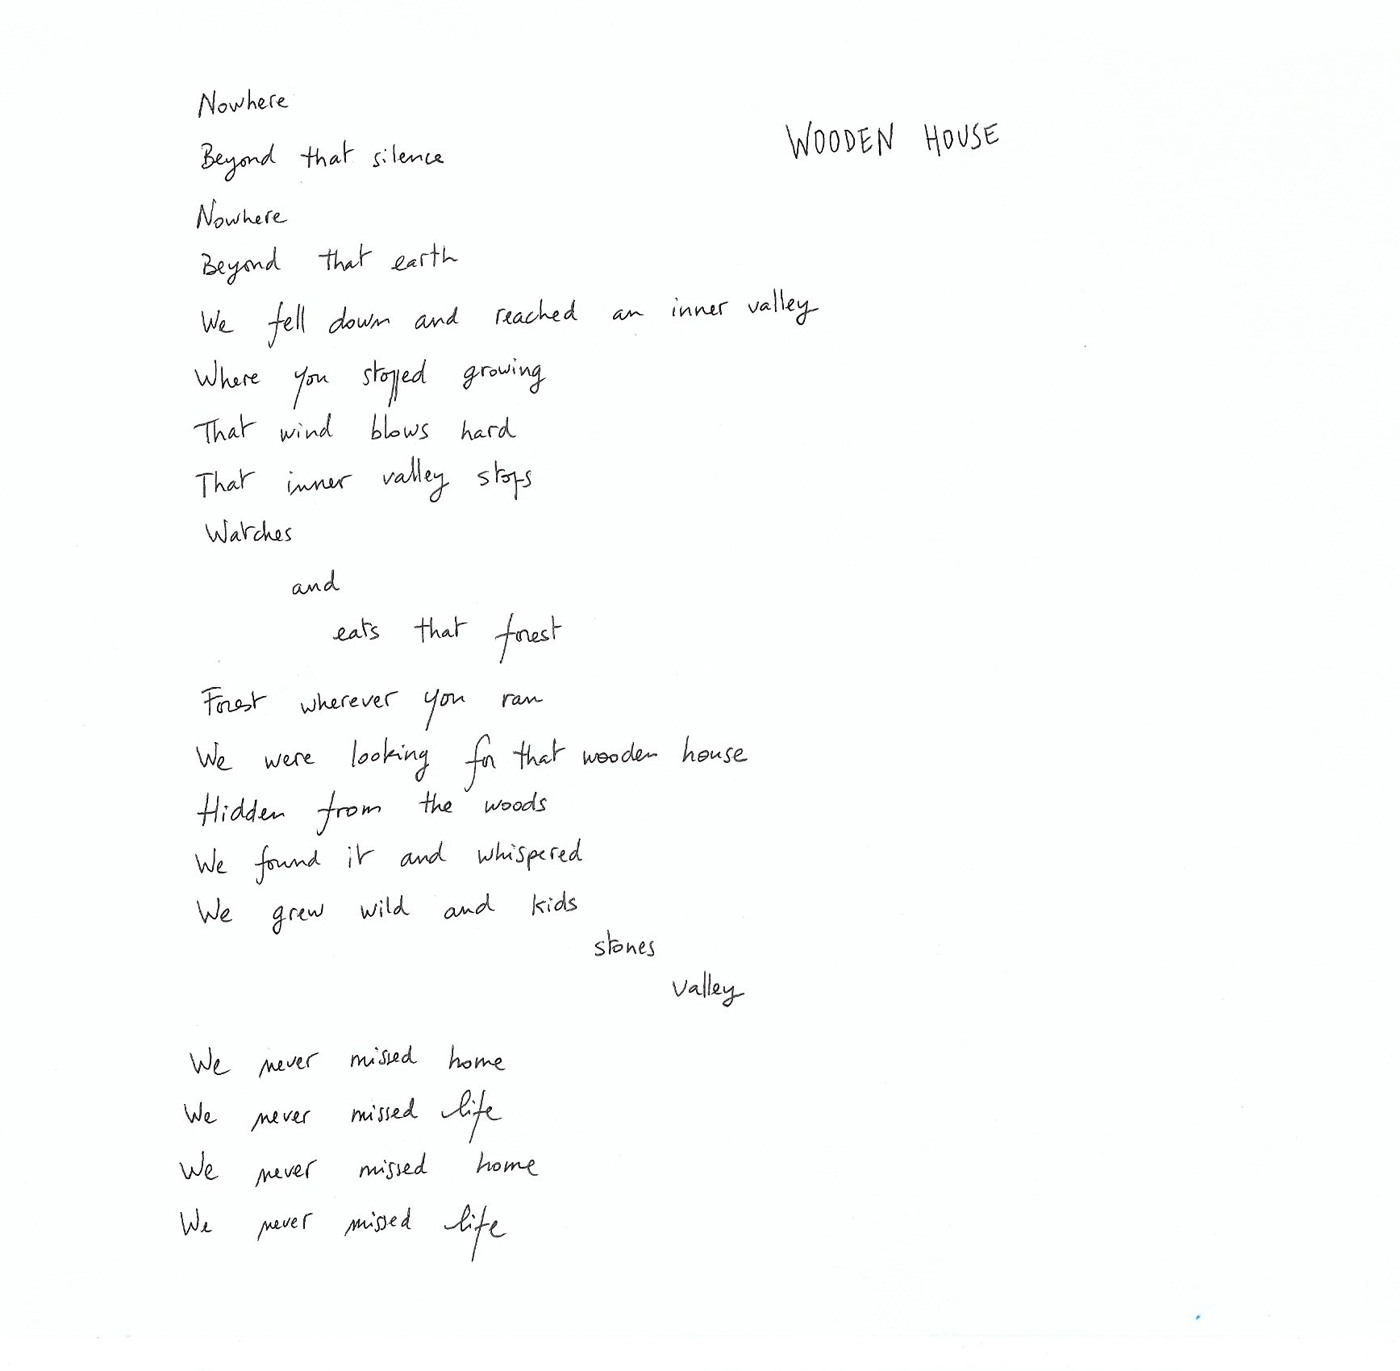 WOODEN HOUSE
Nowhere
Beyond that silence
Nowhere
Beyond that earth
We fell down and reached an inner valley
Where you stopped growing
That wind blows hard
That inner valley stops
Watches
and
eats that forest
Forest wherever you ran
We were looking for that wooden house
Hidden from the woods
We found it and whispered
We grew wild and kids
stones
valley
We never missed home
We never missed life
We never missed home
We never missed life